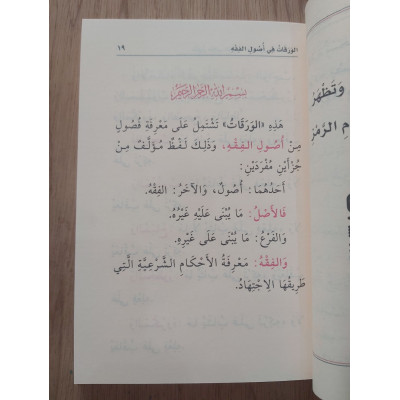 الوَرَقَاتُ فِي أُصُولِ الفِقْهِ
١٩
بِسْمِ اللهِ الرَّحْمٰنِ الرَّحِيْمِ
هَذِهِ «الوَرَقَاتُ» تَشْتَمِلُ عَلَى مَعْرِفَةِ فُصُولٍ
مِنْ أُصُولِ الفِقْهِ، وَذَلِكَ لَفْظٌ مُؤَلَّفٌ مِنْ
جُزْأَيْنِ مُفْرَدَيْنِ:
أَحَدُهُمَا: أُصُولٌ، وَالآخَرُ: الفِقْهُ.
فَالأَصْلُ: مَا يُبْنَى عَلَيْهِ غَيْرُهُ.
وَالفَرْعُ: مَا يُبْنَى عَلَى غَيْرِهِ.
وَالفِقْهُ: مَعْرِفَةُ الأَحْكَامِ الشَّرْعِيَّةِ الَّتِي
طَرِيقُهَا الِاجْتِهَادُ.
وَتَظْهَرُ
الرَّمْزِ